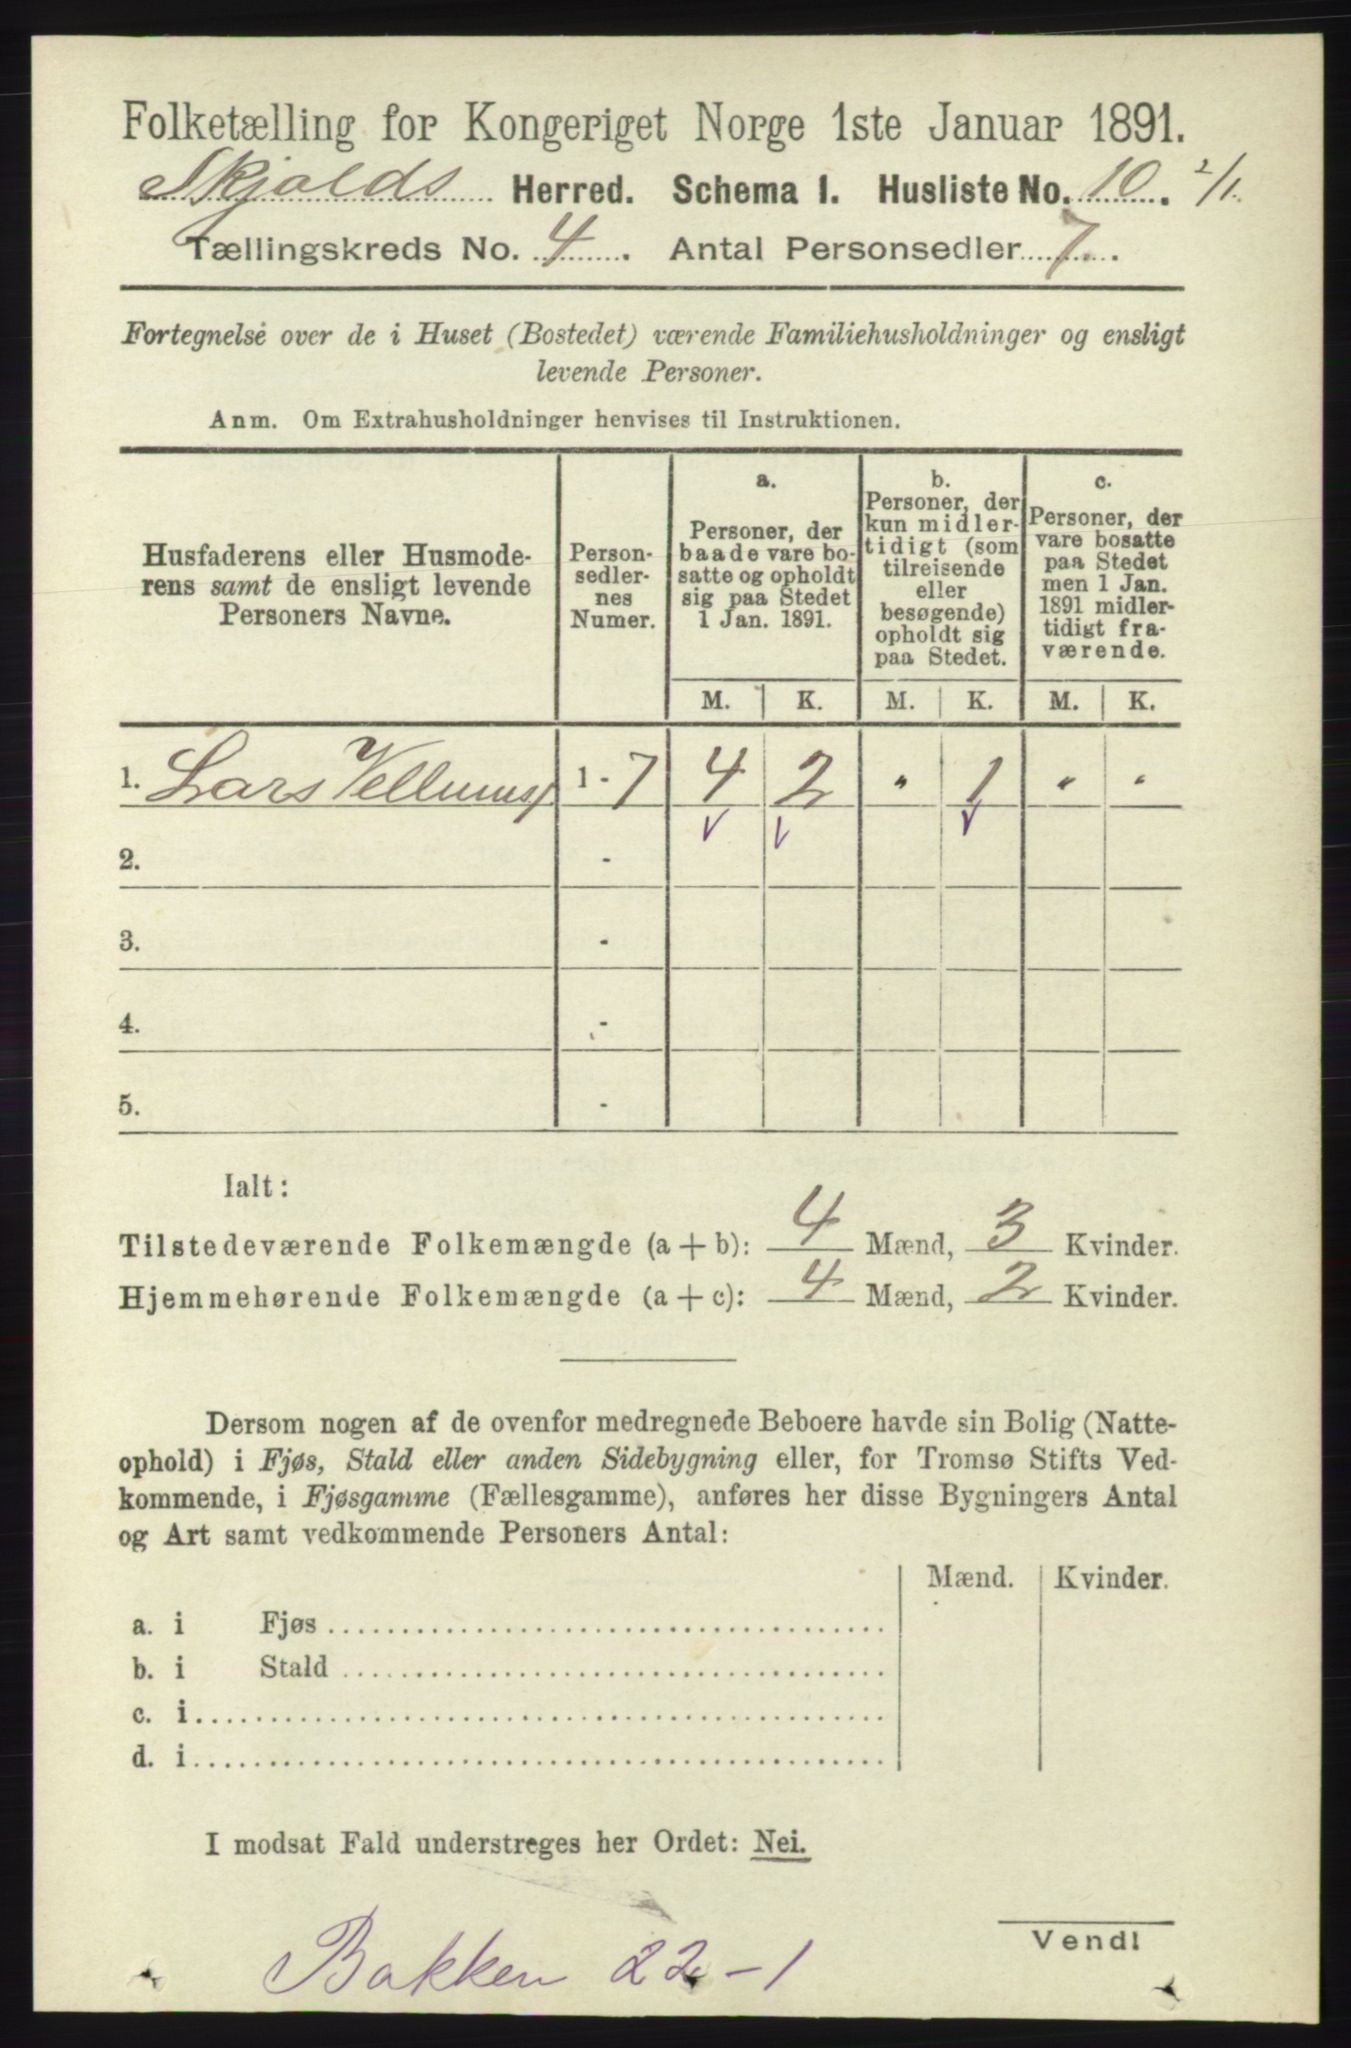 Folketælling for Kongeriget Norge 1ste Januar 1891.
Skjolds Herred. Schema 1. Husliste No. 10. 2/1.
Tællingskreds No. 4. Antal Personsedler 7.
Fortegnelse over de i Huset (Bostedet) værende Familiehusholdninger og ensligt
levende Personer.
Anm. Om Extrahusholdninger henvises til Instruktionen.
Husfaderens eller Husmode-
rens samt de ensligt levende
Personers Navne.
Person-
sedler-
nes
Numer.
a.
Personer, der
baade vare bo-
satte og opholdt
sig paa Stedet
1 Jan. 1891.
b.
Personer, der
kun midler-
tidigt (som
tilreisende
eller
besøgende)
opholdt sig
paa Stedet.
c.
Personer, der
vare bosatte
paa Stedet
men 1 Jan.
1891 midler-
tidigt fra-
værende.
M. K. M. K. M. K.
1. Lars 1 - 7 4 2 " 1 " "
2. -
3. -
4. -
5. -
Ialt:
Tilstedeværende Folkemængde (a + b): 4 Mænd, 3 Kvinder.
Hjemmehørende Folkemængde (a + c): 4 Mænd, 2 Kvinder.
Dersom nogen af de ovenfor medregnede Beboere havde sin Bolig (Natte-
ophold) i Fjøs, Stald eller anden Sidebygning eller, for Tromsø Stifts Ved-
kommende, i Fjøsgamme (Fællesgamme), anføres her disse Bygningers Antal
og Art samt vedkommende Personers Antal:
Mænd. Kvinder.
a. i Fjøs
b. i Stald
c. i
d. i
I modsat Fald understreges her Ordet: Nei.
Vend!
Bakken 22-1